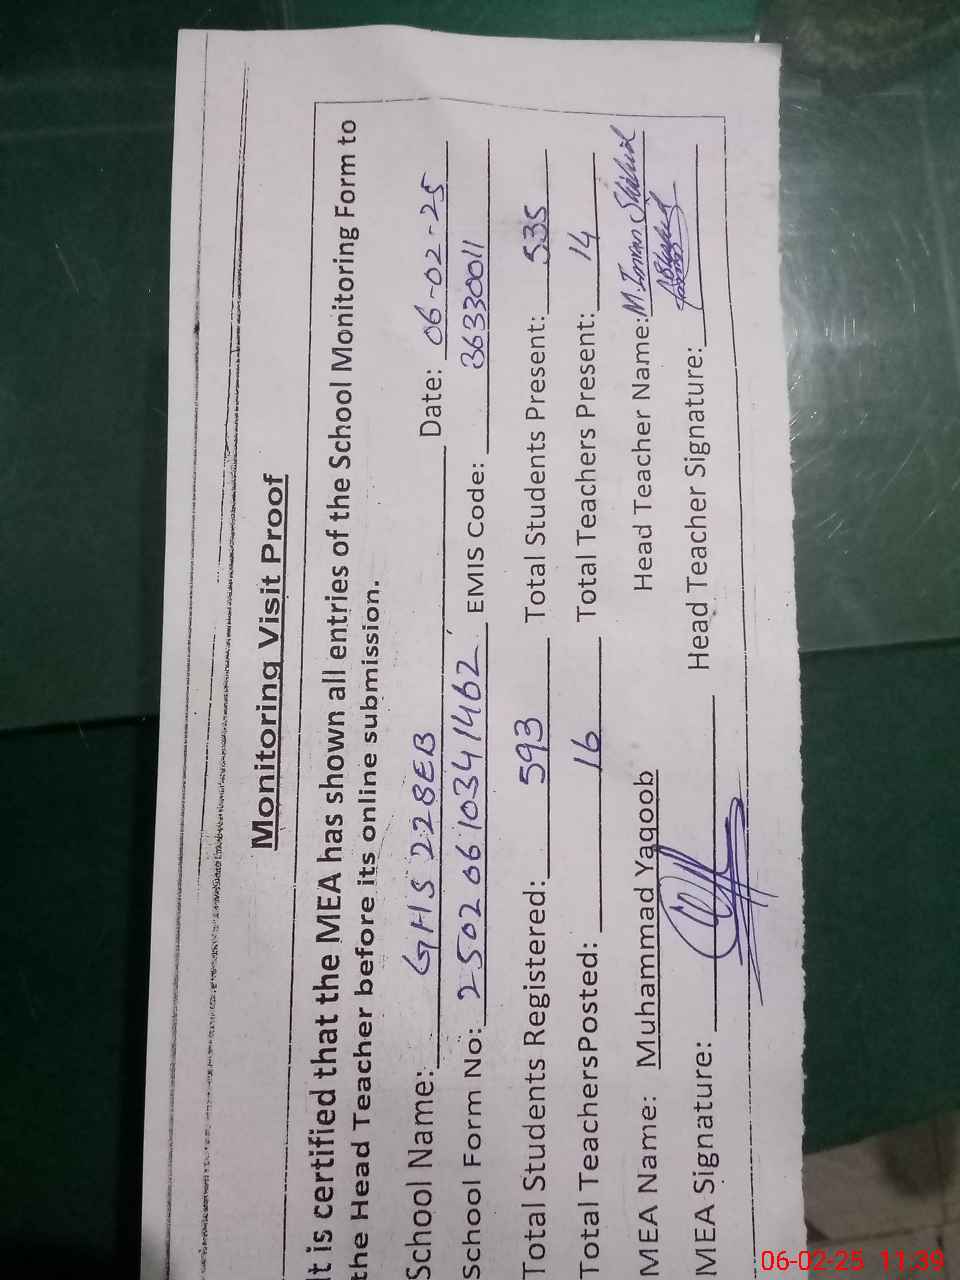 Monitoring Visit Proof
It is certified that the MEA has shown all entries of the School Monitoring Form to
the Head Teacher before its online submission.
School Name: GHS 228EB Date: 06-02-25
School Form No: 2502061034 1462 EMIS Code: 36330011
Total Students Registered: 593 Total Students Present: 535
Total TeachersPosted: 16 Total Teachers Present: 14
MEA Name: Muhammad Yaqoob Head Teacher Name: M. Imran Shahid
MEA Signature: Head Teacher Signature:
06-02-25 11:39